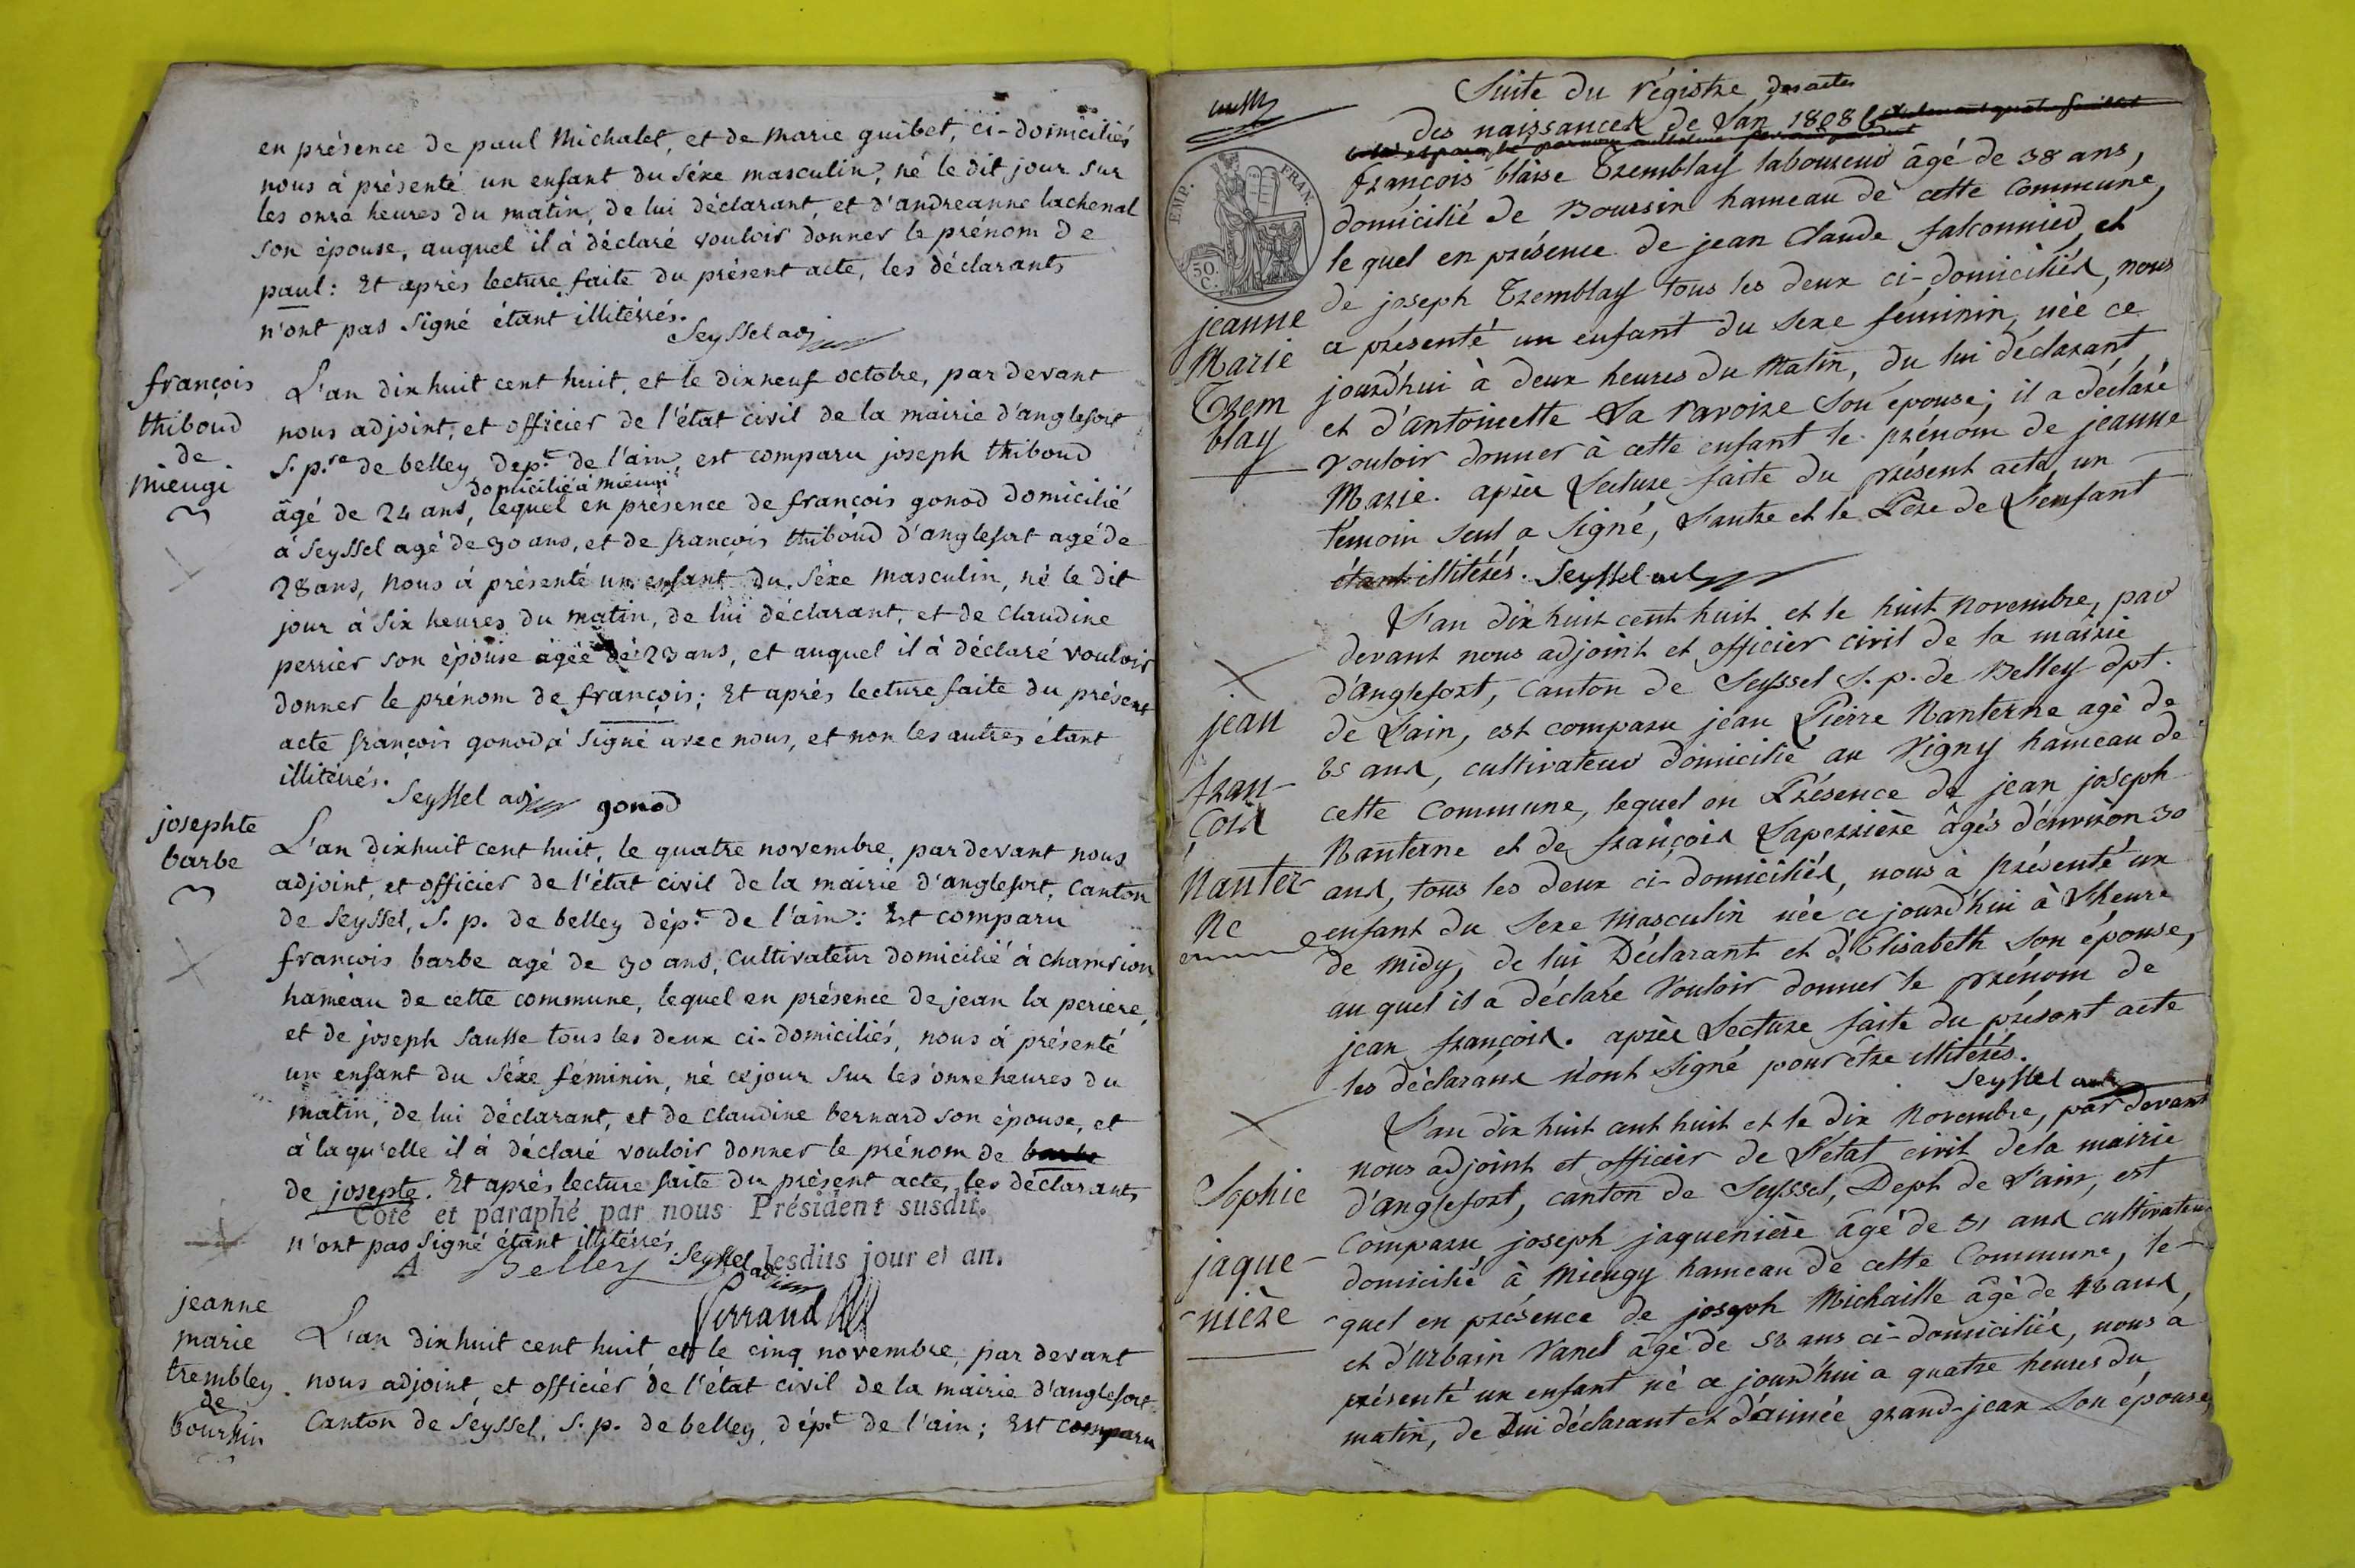 en présence de paul Michalet, et de marie guibet, ci-domiciliés
nous à présenté un enfant du séxe masculin, né le dit jour sur
les onze heures du matin, de lui déclarant, et d'andreanne lachenal
son épouse, auquel il à déclaré vouloir donner le prénom de
paul: Et après lecture faite du présent acte, les déclarants
n'ont pas signé étant illitérrés.
Seyssel adj
françois
thiboud
de
mieugi
L'an dixhuit cent huit, et le dixneuf octobre, par devant
nous adjoint, et officier de l'état civil de la mairie d'anglefort
S. p.re de belley dep.t de l'ain, est comparu joseph thiboud
domicilié à mieugi
âgé de 24 ans, lequel en présence de françois gonod domicilié
à Seyssel agé de 30 ans, et de françois thiboud d'anglefort agé de
28 ans, nous à présenté un enfant du séxe masculin, né le dit
jour à six heures du matin, de lui déclarant, et de claudine
perrier son épouse agée de 23 ans, et auquel il à déclaré vouloir
donner le prénom de françois; Et après lecture faite du présent
acte françois gonod à signé avec nous, et non les autres étant
illitérrés.
Seyssel adj gonod
josephte
barbe
L'an dixhuit cent huit, le quatre novembre, pardevant nous
adjoint, et officier de l'état civil de la mairie d'anglefort, Canton
de Seyssel, S. p. de belley dép.t de l'ain: Est comparu
françois barbe agé de 30 ans, cultivateur domicilié à champion
hameau de cette commune, lequel en présence de jean la periere,
et de joseph Sausse tous les deux ci-domiciliés, nous à présenté
un enfant du séxe féminin, né ce jour sur les onne heures du
matin, de lui déclarant, et de claudine bernard son épouse, et
à laqu'elle il à déclaré vouloir donner le prénom de barbe
de josepte. Et après lecture faite du présent acte, les déclarants
Coté et paraphé par nous Président susdit.
n'ont pas signé étant illitérrés.
A Belley Seyssel adj lesdits jour et an.
Perrand
jeanne
marie
trembley
de
bourssin
L'an dixhuit cent huit et le cinq novembre, par devant
nous adjoint et officier de l'état civil de la mairie d'anglefort
Canton de Seyssel, S. p. de belley, dép.t de l'ain; Est comparu
Suite du régistre des actes
des naissances de l'an 1808
EMP. FRAN.
50. C.
françois blaise Tremblay laboureur âgé de 38 ans,
domicilié de Boursin hameau de cette Commune,
le quel en présence de jean Claude falconnier, et
de joseph Tremblay tous les deux ci-domiciliés, nous
jeanne
Marie
Trem
blay
a présenté un enfant du sexe féminin, née ce
jourd'hui à deux heures du Matin, du lui déclarant
et d'antoinette La ravoire son épouse; il a déclaré
vouloir donner à cette enfant le prénom de jeanne
Marie. après Lecture faite du présent acte, un
témoin seul a signé, L'autre et le Père de L'enfant
étant illitérés. Seyssel adj
L'an dix huit cent huit et le huit novembre, par
devant nous adjoint et officier civil de la mairie
d'anglefort, Canton de Seyssel S. p. de Belley dpt.
jean
fran-
çois
Nanter-
ne
de L'ain, est comparu jean Pierre Nanterne agé de
25 ans, cultivateur domicilié au Vigny hameau de
cette Commune, lequel en Présence de jean joseph
Nanterne et de françois Laperrière âgés d'environ 30
ans, tous les deux ci-domiciliés, nous à présenté un
enfant du sexe masculin née ce jourd'hui à L'heure
de midy, de lui Déclarant et d'Elisabeth son épouse,
au quel il a déclaré vouloir donner le prénom de
jean françois. après Lecture faite du présent acte
les déclarans n'ont signé pour être illitérés.
Seyssel adj
L'an dix huit cent huit et le dix Novembre, par devant
nous adjoint et officier de L'état civil de la mairie
Sophie
jaque-
nière
d'anglefort, canton de Seyssel, Dept de L'ain, est
Comparu joseph jaquenière âgé de 31 ans cultivateur
domicilié à Mieugy hameau de cette Commune, le-
quel en présence de joseph Michaille âgé de 48 ans,
et d'Urbain Vanel âgé de 58 ans ci-domiciliés, nous à
présenté un enfant né ce jourd'hui a quatre heures du
matin, de Lui déclarant et d'aimée grand-jean son épouse,